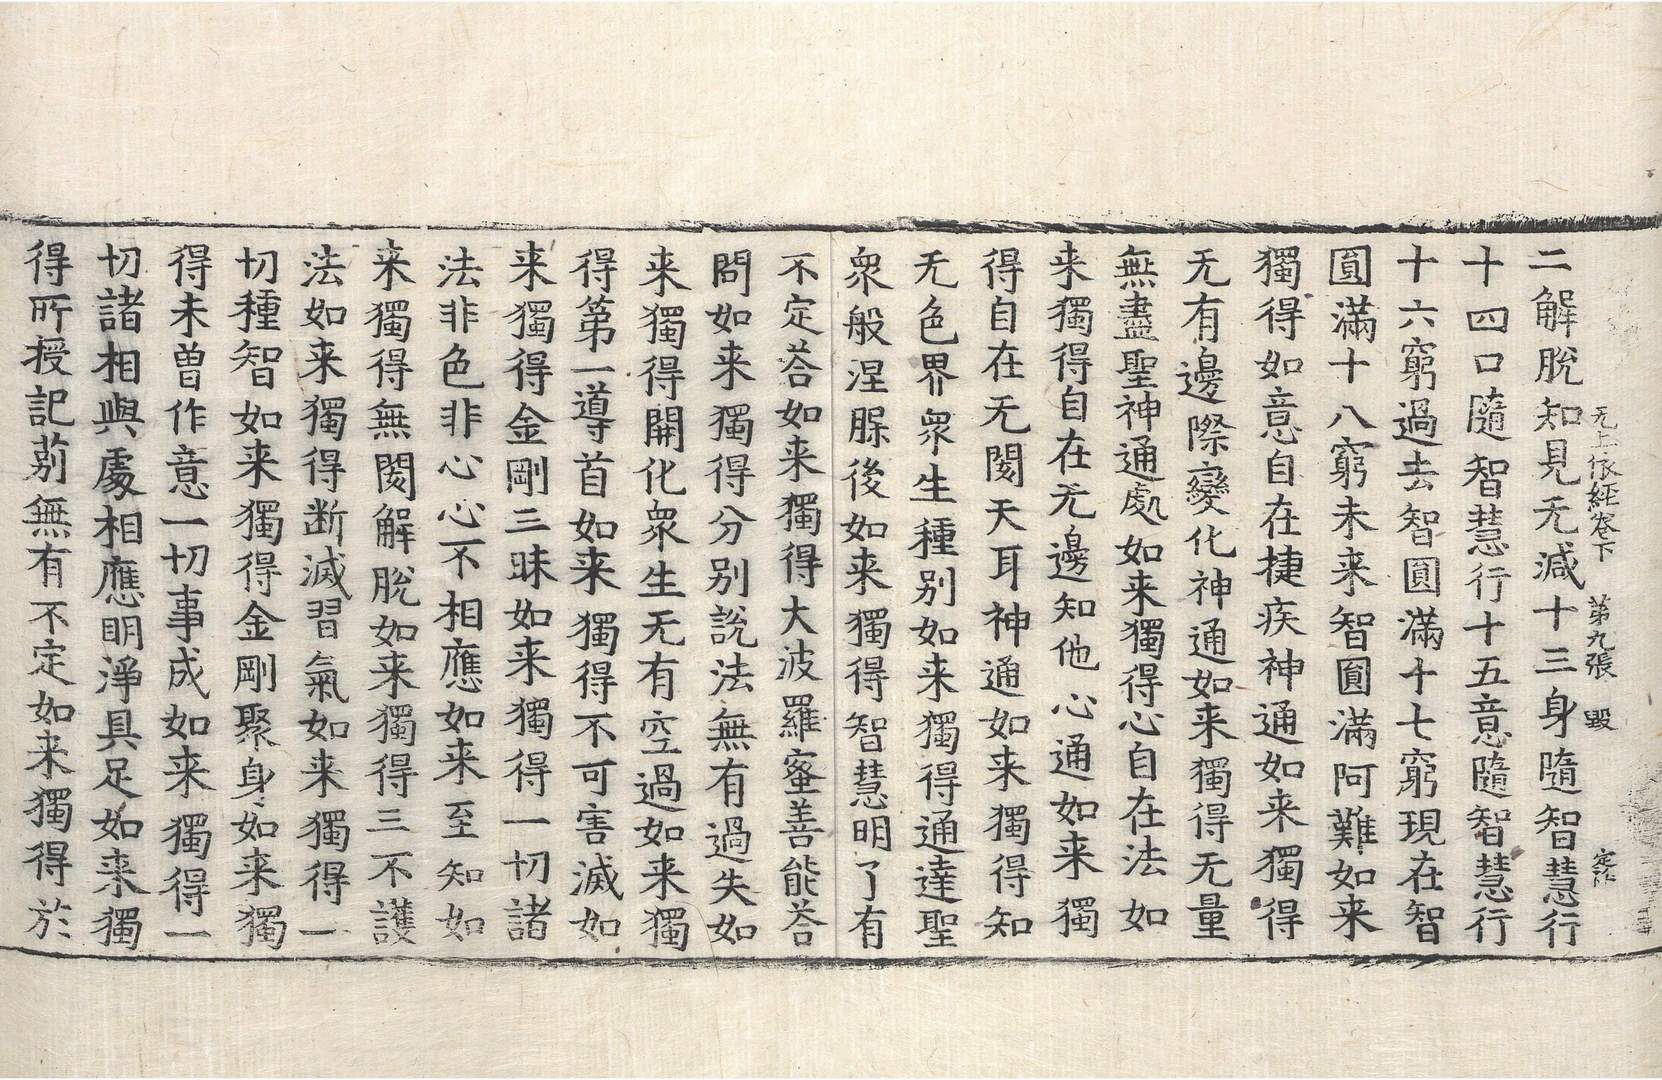 无上依經卷下　第九張　毀
二解脫知見无減十三身隨智慧行
十四口隨智慧行十五意隨智慧行
十六窮過去智圓滿十七窮現在智
圓滿十八窮未來智圓滿阿難如来
獨得如意自在捷疾神通如来獨得
无有邊際變化神通如来獨得无量
無盡聖神通處如来獨得心自在法如
来獨得自在无邊知他心通如来獨
得自在无閡天耳神通如来獨得知
无色界衆生種别如来獨得通達聖
衆般涅腺後如来獨得智慧明了有
不定荅如来獨得大波羅蜜善能荅
問如来獨得分别說法無有過失如
来獨得開化衆生无有空過如来獨
得第一導首如来獨得不可害滅如
来獨得金剛三昧如来獨得一切諸
法非色非心心不相應如来至知如
来獨得無閡解脫如来獨得三不護
法如来獨得断滅習氣如来獨得一
切種智如来獨得金剛聚身如来獨
得未曾作意一切事成如来獨得一
切諸相與處相應明淨具足如来獨
得所授記莂無有不定如来獨得於